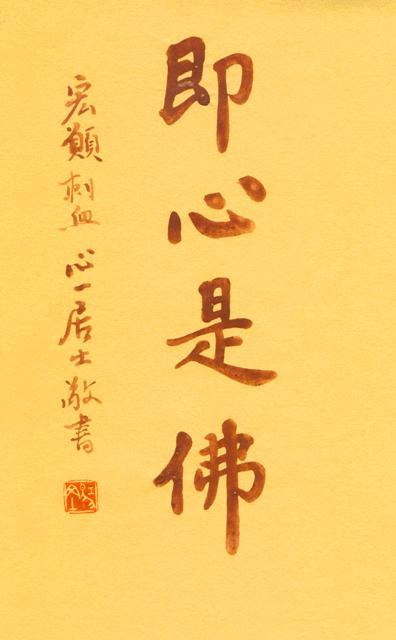 即心是佛
宏願刺血心一居士敬書